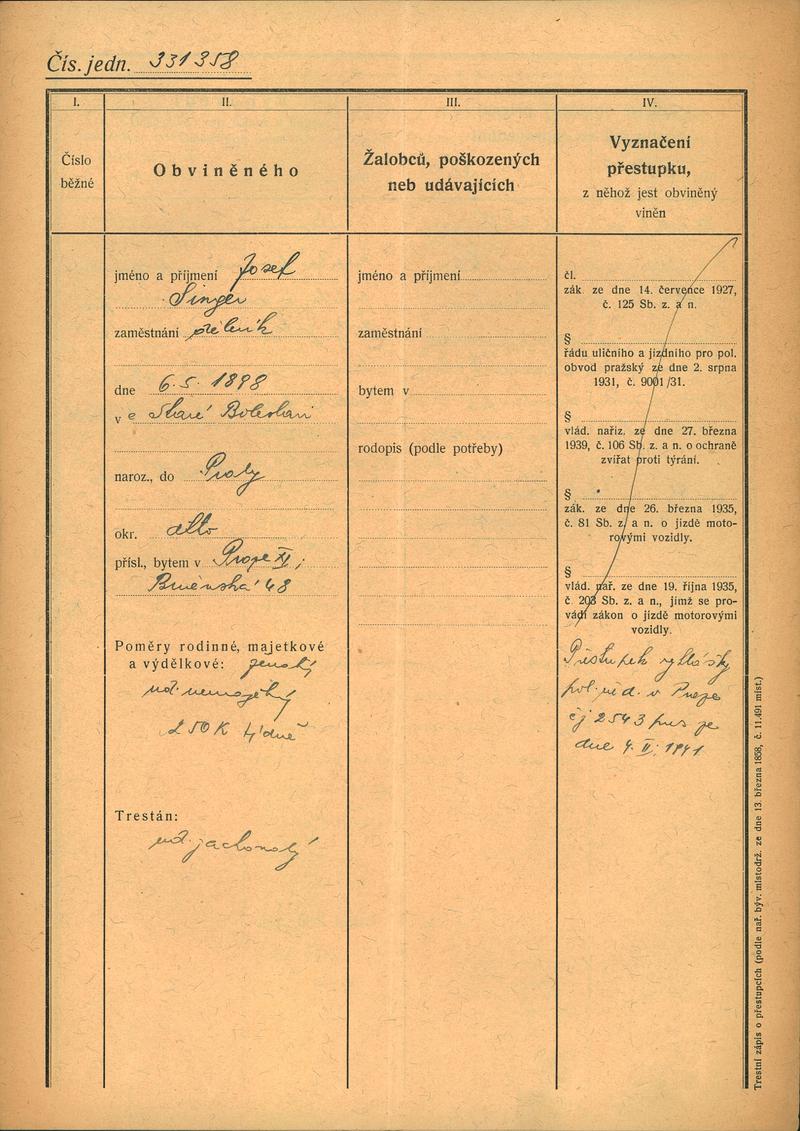 Čís. jedn. 331358
I.
Číslo
běžné
II.
Obviněného
III.
Žalobců, poškozených
neb udávajících
IV.
Vyznačení
přestupku,
z něhož jest obviněný
viněn
jméno a příjmení Josef
Singer
zaměstnání dělník
dne 6.5.1898
v e Staré Boleslavi
naroz., do Prahy
okr. detto
přísl., bytem v Praze XI,
Brněnská 48
Poměry rodinné, majetkové
a výdělkové: ženatý
úd. nemajetný
250 K týdně
Trestán:
úd. zachovalý
jméno a příjmení
zaměstnání
bytem v
rodopis (podle potřeby)
čl.
zák. ze dne 14. července 1927,
č. 125 Sb. z. a n.
§
řádu uličního a jízdního pro pol.
obvod pražský ze dne 2. srpna
1931, č. 9001/31.
§
vlád. nařiz. ze dne 27. března
1939, č. 106 Sb. z. a n. o ochraně
zvířat proti týrání.
§
zák. ze dne 26. března 1935,
č. 81 Sb. z. a n. o jízdě moto-
rovými vozidly.
§
vlád. nař. ze dne 19. října 1935,
č. 203 Sb. z. a n., jímž se pro-
vádí zákon o jízdě motorovými
vozidly.
Přestupek vyhlášky
pol. řed. v Praze
čj 2543 pres ze
dne 4. II. 1941
Trestní zápis o přestupcích (podle nař. býv. místodrž. ze dne 13. března 1858, č. 11.491 míst.)